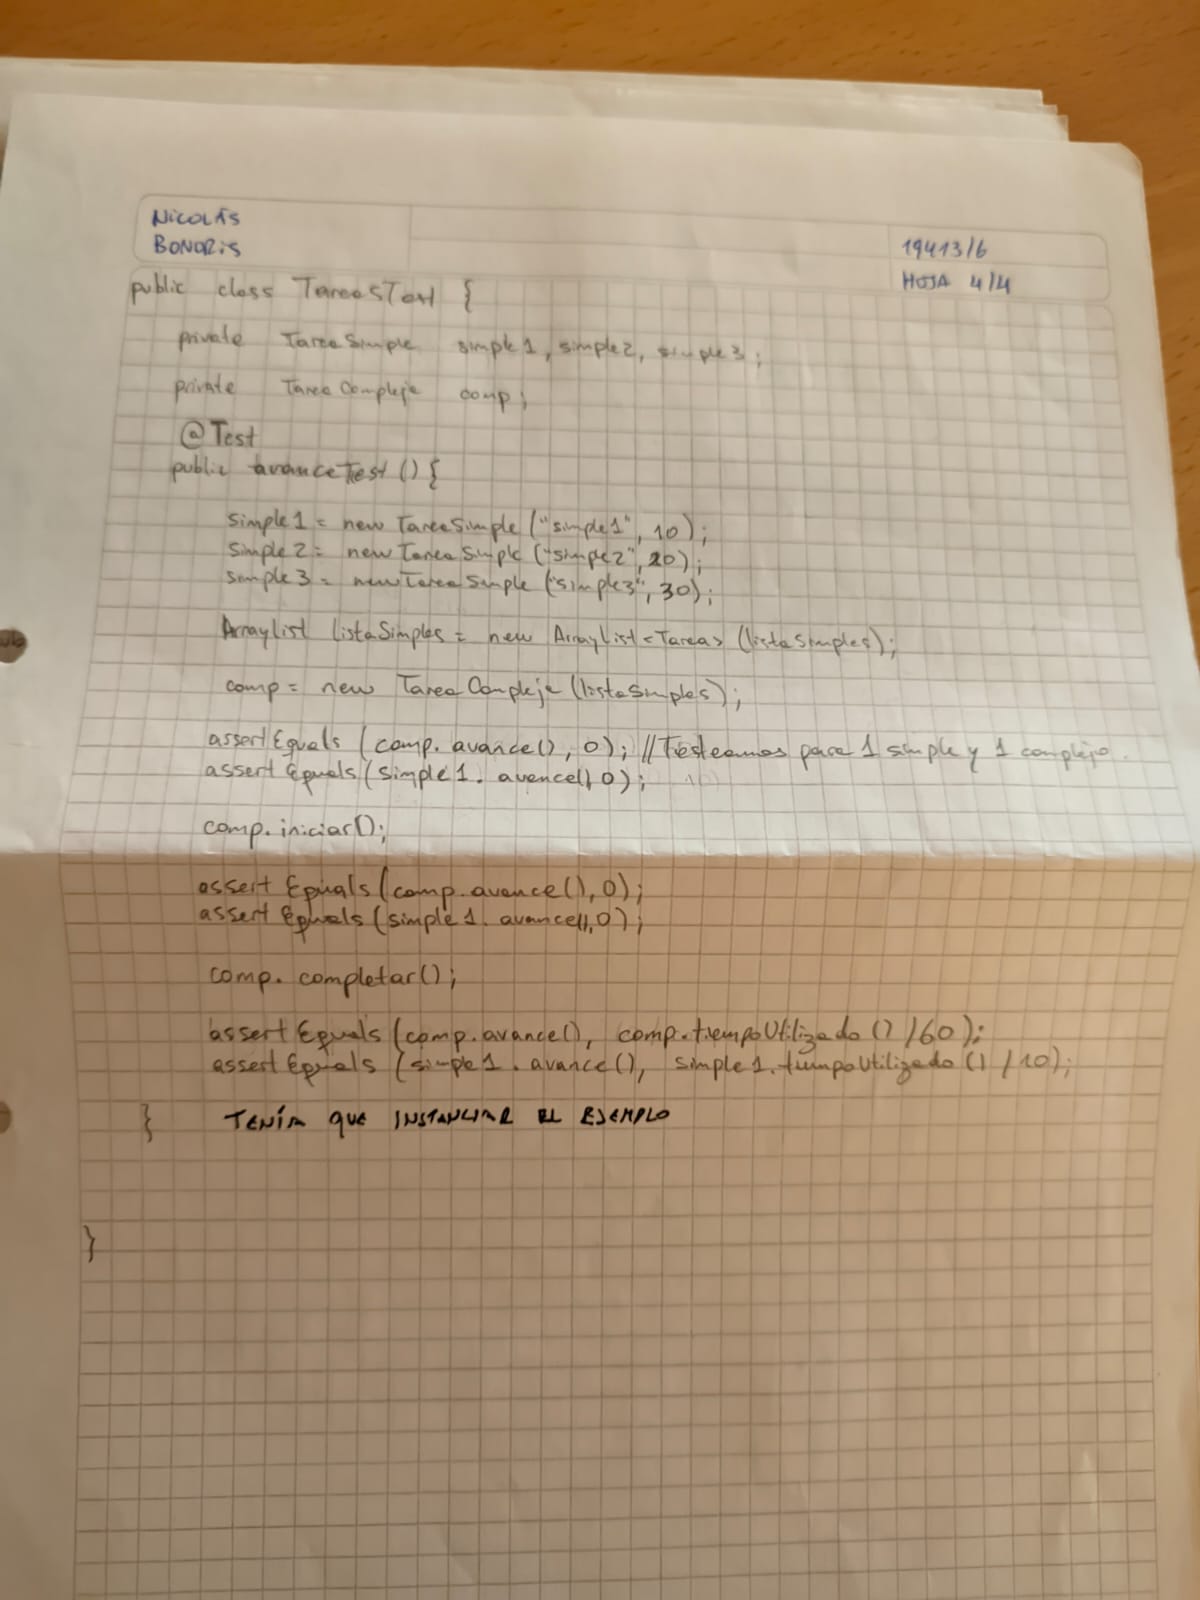 NICOLÁS
BONORIS
19413/6
HOJA 4/4
public class TareasTest {
private TareaSimple simple1, simple2, simple3;
private TareaCompleja comp;
@Test
public avanceTest () {
simple1 = new TareaSimple ("simple1", 10);
simple2 = new TareaSimple ("simple2", 20);
simple3 = new TareaSimple ("simple3", 30);
ArrayList listaSimples = new ArrayList <Tarea> (listaSimples);
comp = new TareaCompleja (listaSimples);
assertEquals (comp.avance(), 0); // Testeamos para 1 simple y 1 complejo.
assertEquals (simple1.avance(), 0);
comp.iniciar();
assertEquals (comp.avance(), 0);
assertEquals (simple1.avance(), 0);
comp.completar();
assertEquals (comp.avance(), comp.tiempoUtilizado () /60);
assertEquals (simple1.avance(), simple1.tiempoUtilizado () /10);
} TENÍA QUE INSTANCIAR EL EJEMPLO
}